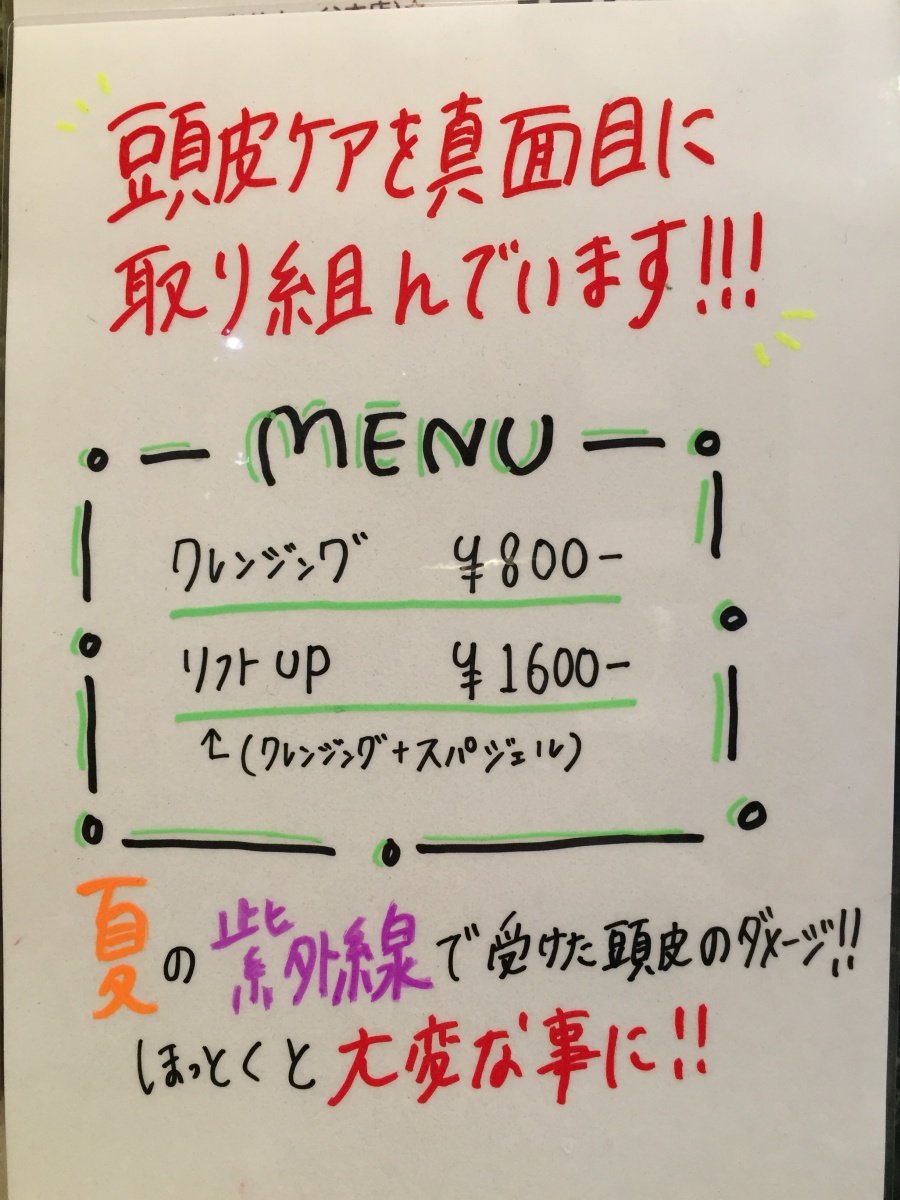 頭皮ケアを真面目に
取り組んでいます!!!
MENU
クレンジング ¥800-
リフトUP ¥1600-
↑(クレンジング+スパジェル)
夏の紫外線で受けた頭皮のダメージ!!
ほっとくと大変な事に!!